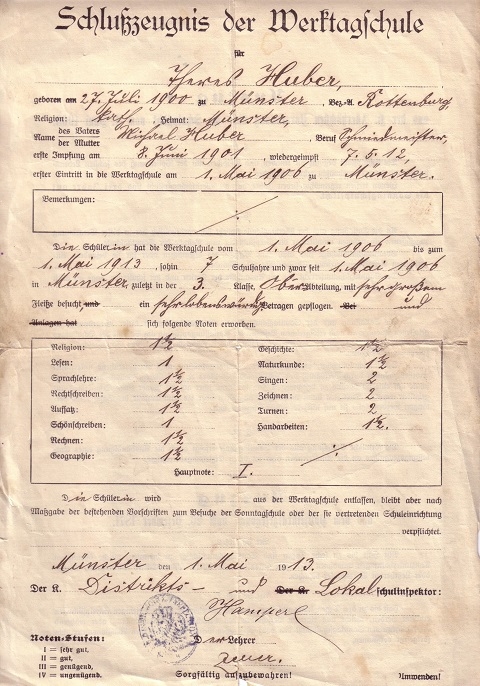 Schlußzeugnis der Werktagschule
für
Theres Huber,
geboren am 27. Juli 1900 zu Münster, Bez.-A. Rottenburg,
Religion: kath., Heimat: Münster,
Name des Vaters der Mutter Michael Huber, Beruf Schmiedmeister,
erste Impfung am 8. Juni 1901, wiedergeimpft 7. 5. 12,
erster Eintritt in die Werktagschule am 1. Mai 1906 zu Münster.
Bemerkungen: ·/·
Die Schülerin hat die Werktagschule vom 1. Mai 1906 bis zum
1. Mai 1913, sohin 7 Schuljahre und zwar seit 1. Mai 1906
in Münster, zuletzt in der 3. Klasse, Ober Abteilung, mit sehr großem
Fleiße besucht, und ein sehr lobenswürdiges Betragen gepflogen. Bei und
Anlagen hat sich folgende Noten erworben.
Religion: 1½ Geschichte: 1½
Lesen: 1 Naturkunde: 1½
Sprachlehre: 1½ Singen: 2
Rechtschreiben: 1½ Zeichnen: 2
Aufsatz: 1½ Turnen: 2
Schönschreiben: 1 Handarbeiten: 1½.
Rechnen: 1½
Geographie: 1½ ·/·
Hauptnote: I.
Die Schülerin wird aus der Werktagschule entlassen, bleibt aber nach
Maßgabe der bestehenden Vorschriften zum Besuche der Sonntagschule oder der sie vertretenden Schuleinrichtung
verpflichtet.
Münster den 1. Mai 1913.
Der K. Distrikts- und Der K. Lokalschulinspektor:
Hamperl
Noten-Stufen: Der Lehrer
I = sehr gut,
II = gut,
III = genügend,
IV = ungenügend. Sorgfältig aufzubewahren! Umwenden!